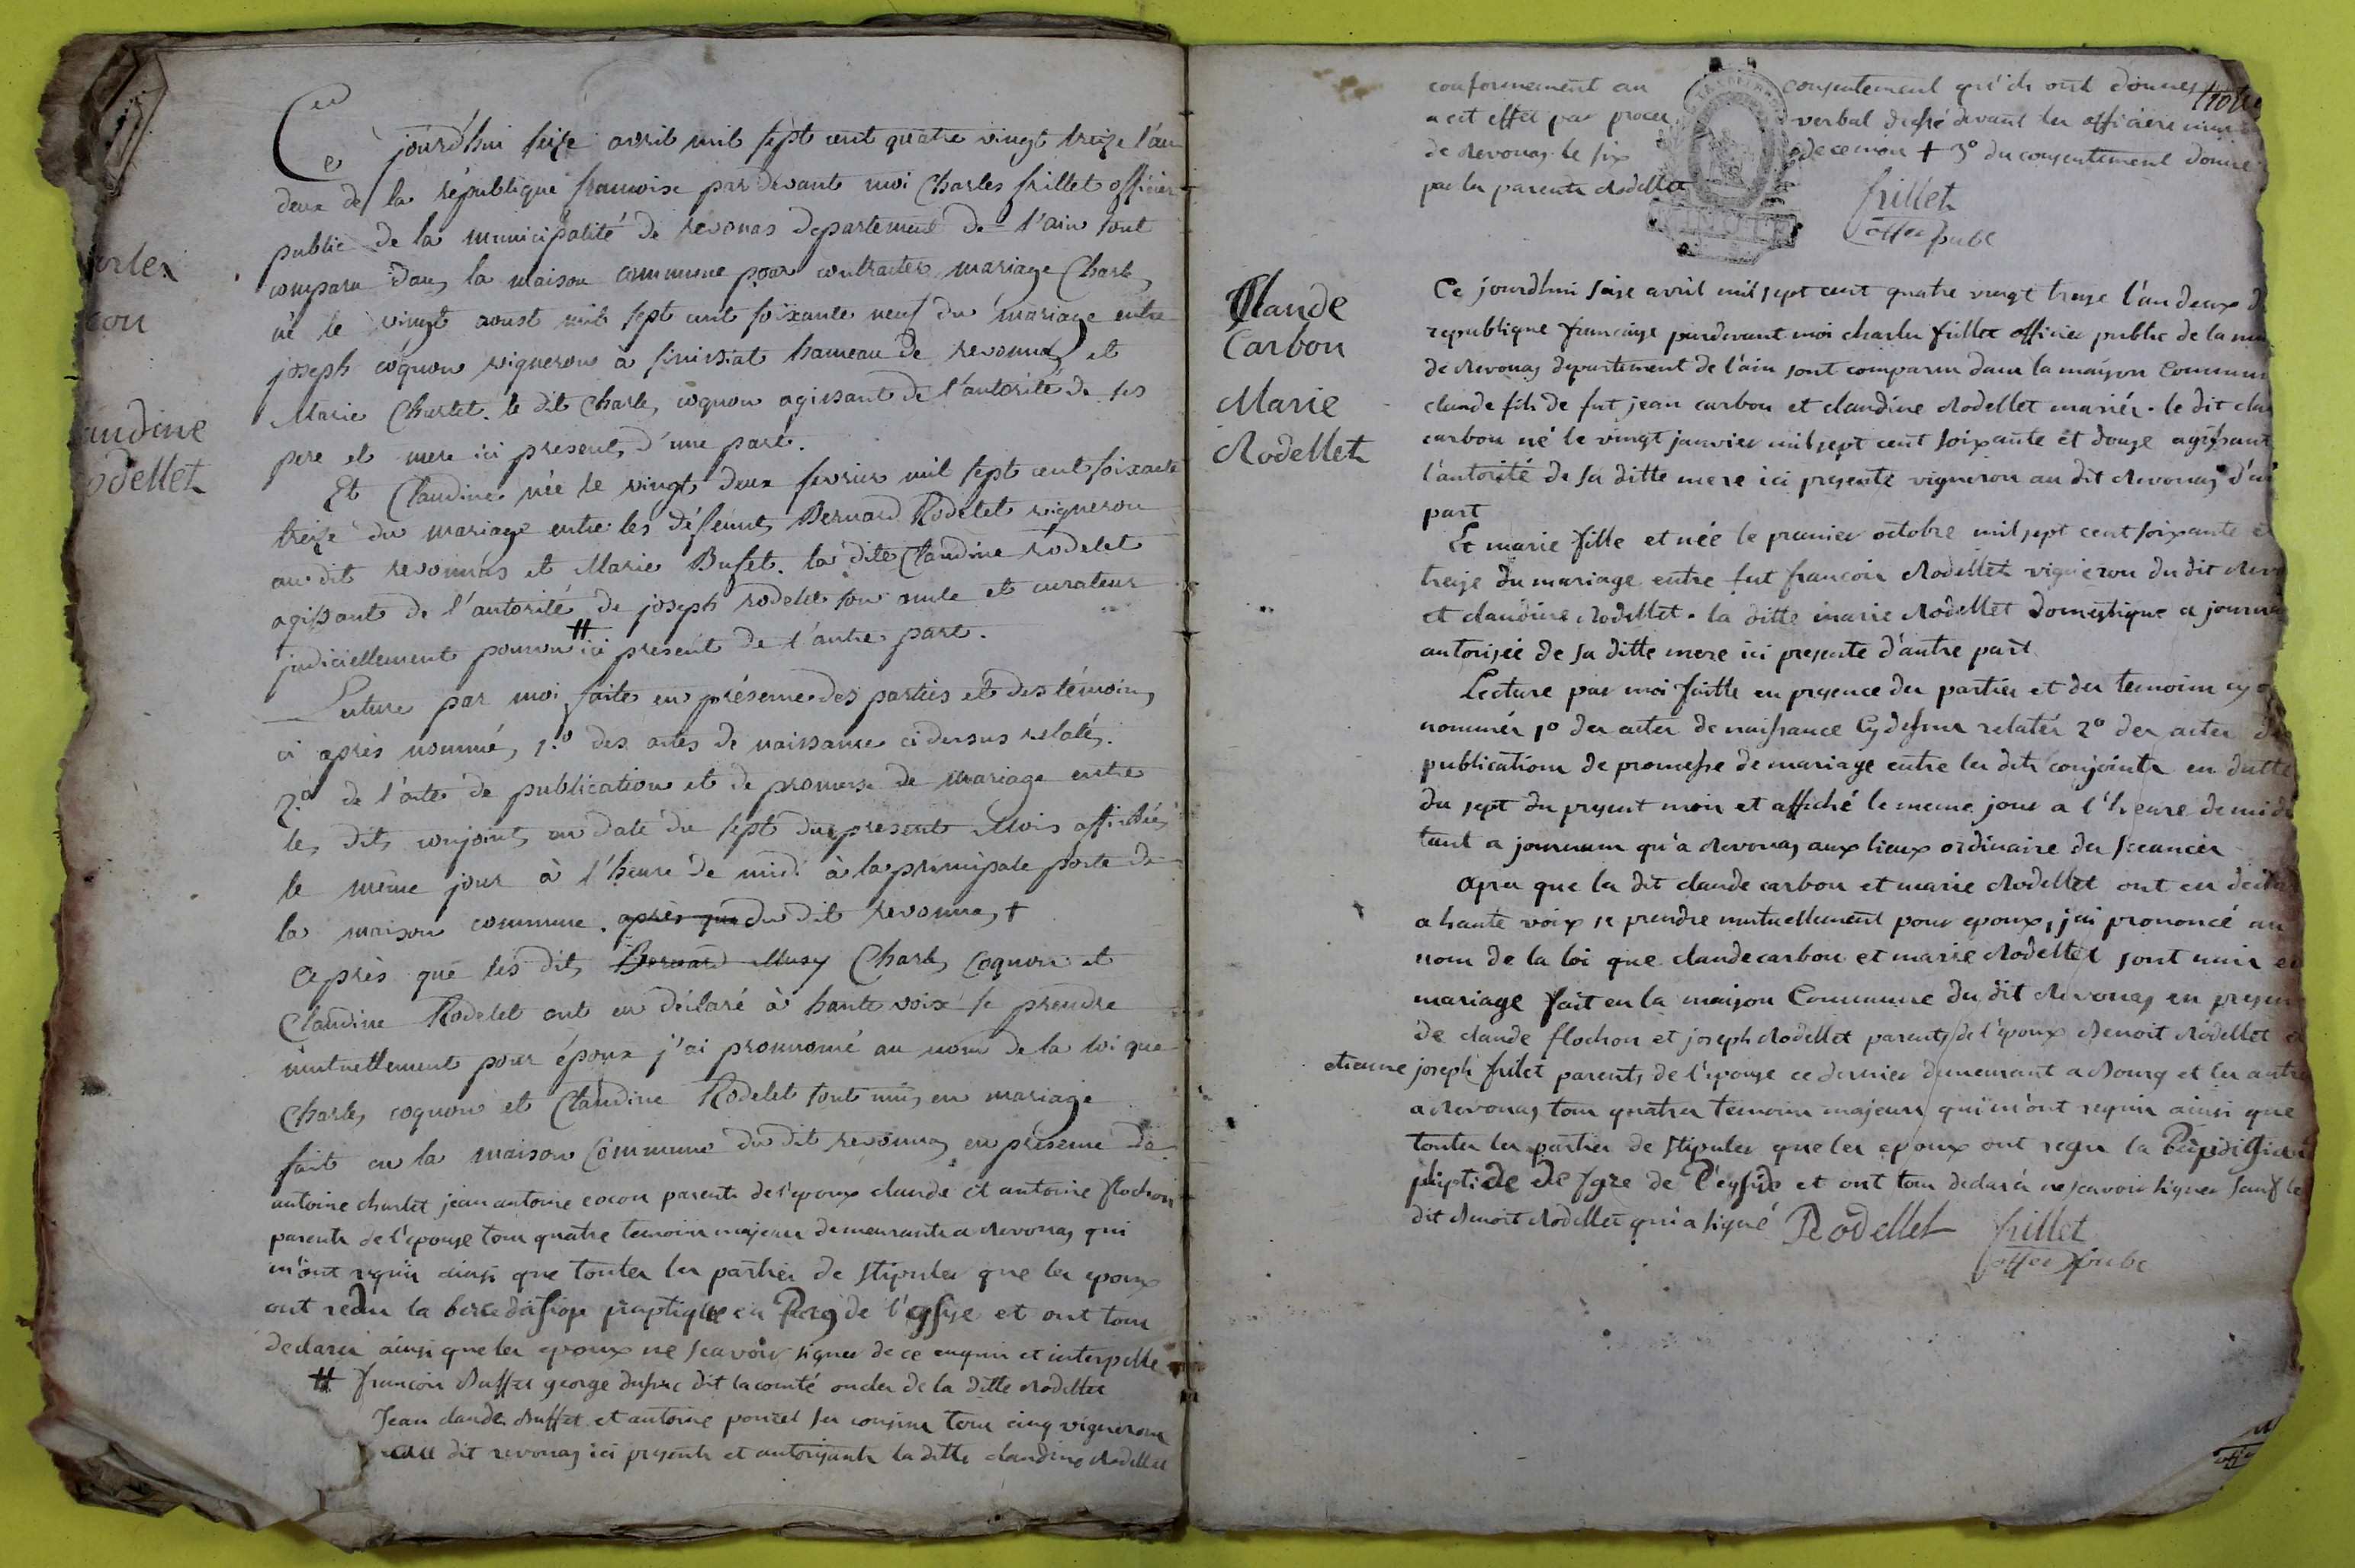 arles
con
audine
odellet
Ce jourd'hui seize avril mil sept cent quatre vingt treize l'an
deux de la république francoise pardevant moi Charles frillet officier
public de la municipalité de revonas departement de l'ain sont
comparu dans la maison commune pour contracter mariage Charles
né le vingt aoust mil sept cent soixante neuf du mariage entre
joseph coquon vigneron à senissiat hameau de revonnas et
Marie Charlet. le dit Charles coquon agissant de l'autorité de ses
pere et mere ici presents d'une part.
Et Claudine née le vingt deux fevrier mil sept cent soixante
treize du mariage entre les défeunts Bernard Rodelet vigneron
au dit revonnas et Marie Bufet. la dite Claudine rodelet
agissant de l'autorité de joseph rodelet son oncle et curateur
judiciellement pourvu # ici present de l'autre part.
Lecture par moi faite en présence des parties et des témoins
ci après nommés, 1.º des actes de naissance ci dessus relatés.
2.º de l'acte de publication et de promesse de mariage entre
les dits conjoints en date du sept du present Mois affichée
le même jour à l'heure de midi à la principale porte de
la maison commune. après que du dit revonnas +
après que les dits Bernard Musy Charles Coquon et
Claudine Rodelet ont eu déclaré à haute voix se prendre
mutuellement pour époux j'ai prononcé au nom de la loi que
Charles coquon et Claudine Rodelet sont unis en mariage
fait en la maison Commune du dit revonnas en présence de
antoine charlet jean antoine cocon parents de l'epoux claude et antoine flochon
parents de l'epouse tous quatre temoins majeurs demeurants a Revonas qui
m'ont requis ainsi que toutes les parties de stipuler que les epoux
ont de l'eglise et ont tous
declarés ainsi que les epoux ne scavoir signer de ce enquis et interpellé
# francois Buffet george dufour dit lacomté oncles de la ditte Rodellet
Jean claude Buffet et antoine poncet ses cousins tous cinq vignerons
au dit revonas ici presents et autorisants la ditte claudine Rodellet
conformement au consentement qu'ils ont donnes
a cet effet par proces verbal dressé devant les officiers muni
de Revonas le six de ce mois + 3º du consentement donné
par les parents Rodellet
frillet
offer pube
Claude
Carbon
Marie
Rodellet
Ce jourdhui saise avril mil sept cent quatre vingt treize l'an deux d
republique francaise pardevant moi charles frillet officier public de la mu
de Revonas departement de l'ain sont comparus dans la maison Commune
claude fils de fut jean carbon et claudine Rodellet mariés. le dit cla
carbon né le vingt janvier mil sept cent soixante et douze agissant
l'autorité de sa ditte mere ici presente vigneron au dit Revonas d'u
part
Et marie fille et née le premier octobre mil sept cent soixante e
treize du mariage entre fut francois Rodellet vigneron du dit Revo
et claudine Rodellet. la ditte marie Rodellet domestique a journa
autorisée de sa ditte mere ici presente d'autre part
Lecture par moi faitte en presence des parties et des temoins cy
nommés 1º des actes de naissance cy dessus relatés 2º des actes de
publications de promesse de mariage entre les dits conjoints en datte
du sept du present mois et affiché le meme jour a l'heure de midi
tant a journans qu'a Revonas aux lieux ordinaire des sceances
apres que les dit claude carbon et marie Rodellet ont eu declar
a haute voix se prendre mutuellement pour epoux, j'ai prononcé au
nom de la loi que claude carbon et marie Rodellet sont unis en
mariage fait en la maison Commune du dit Revonas en presen
de claude flochon et joseph Rodellet parents de l'epoux Benoit Rodellet e
etienne joseph frilet parents de l'epouse ce dernier demeurant a Bourg et les autre
a Revonas tous quatres temoins majeurs qui m'ont requis ainsi que
toutes les parties de stipuler que les epoux ont reçu la
et ont tous declarés ne scavoir signer sauf le
dit Benoit Rodellet qui a signé Rodellet frillet
offer pube